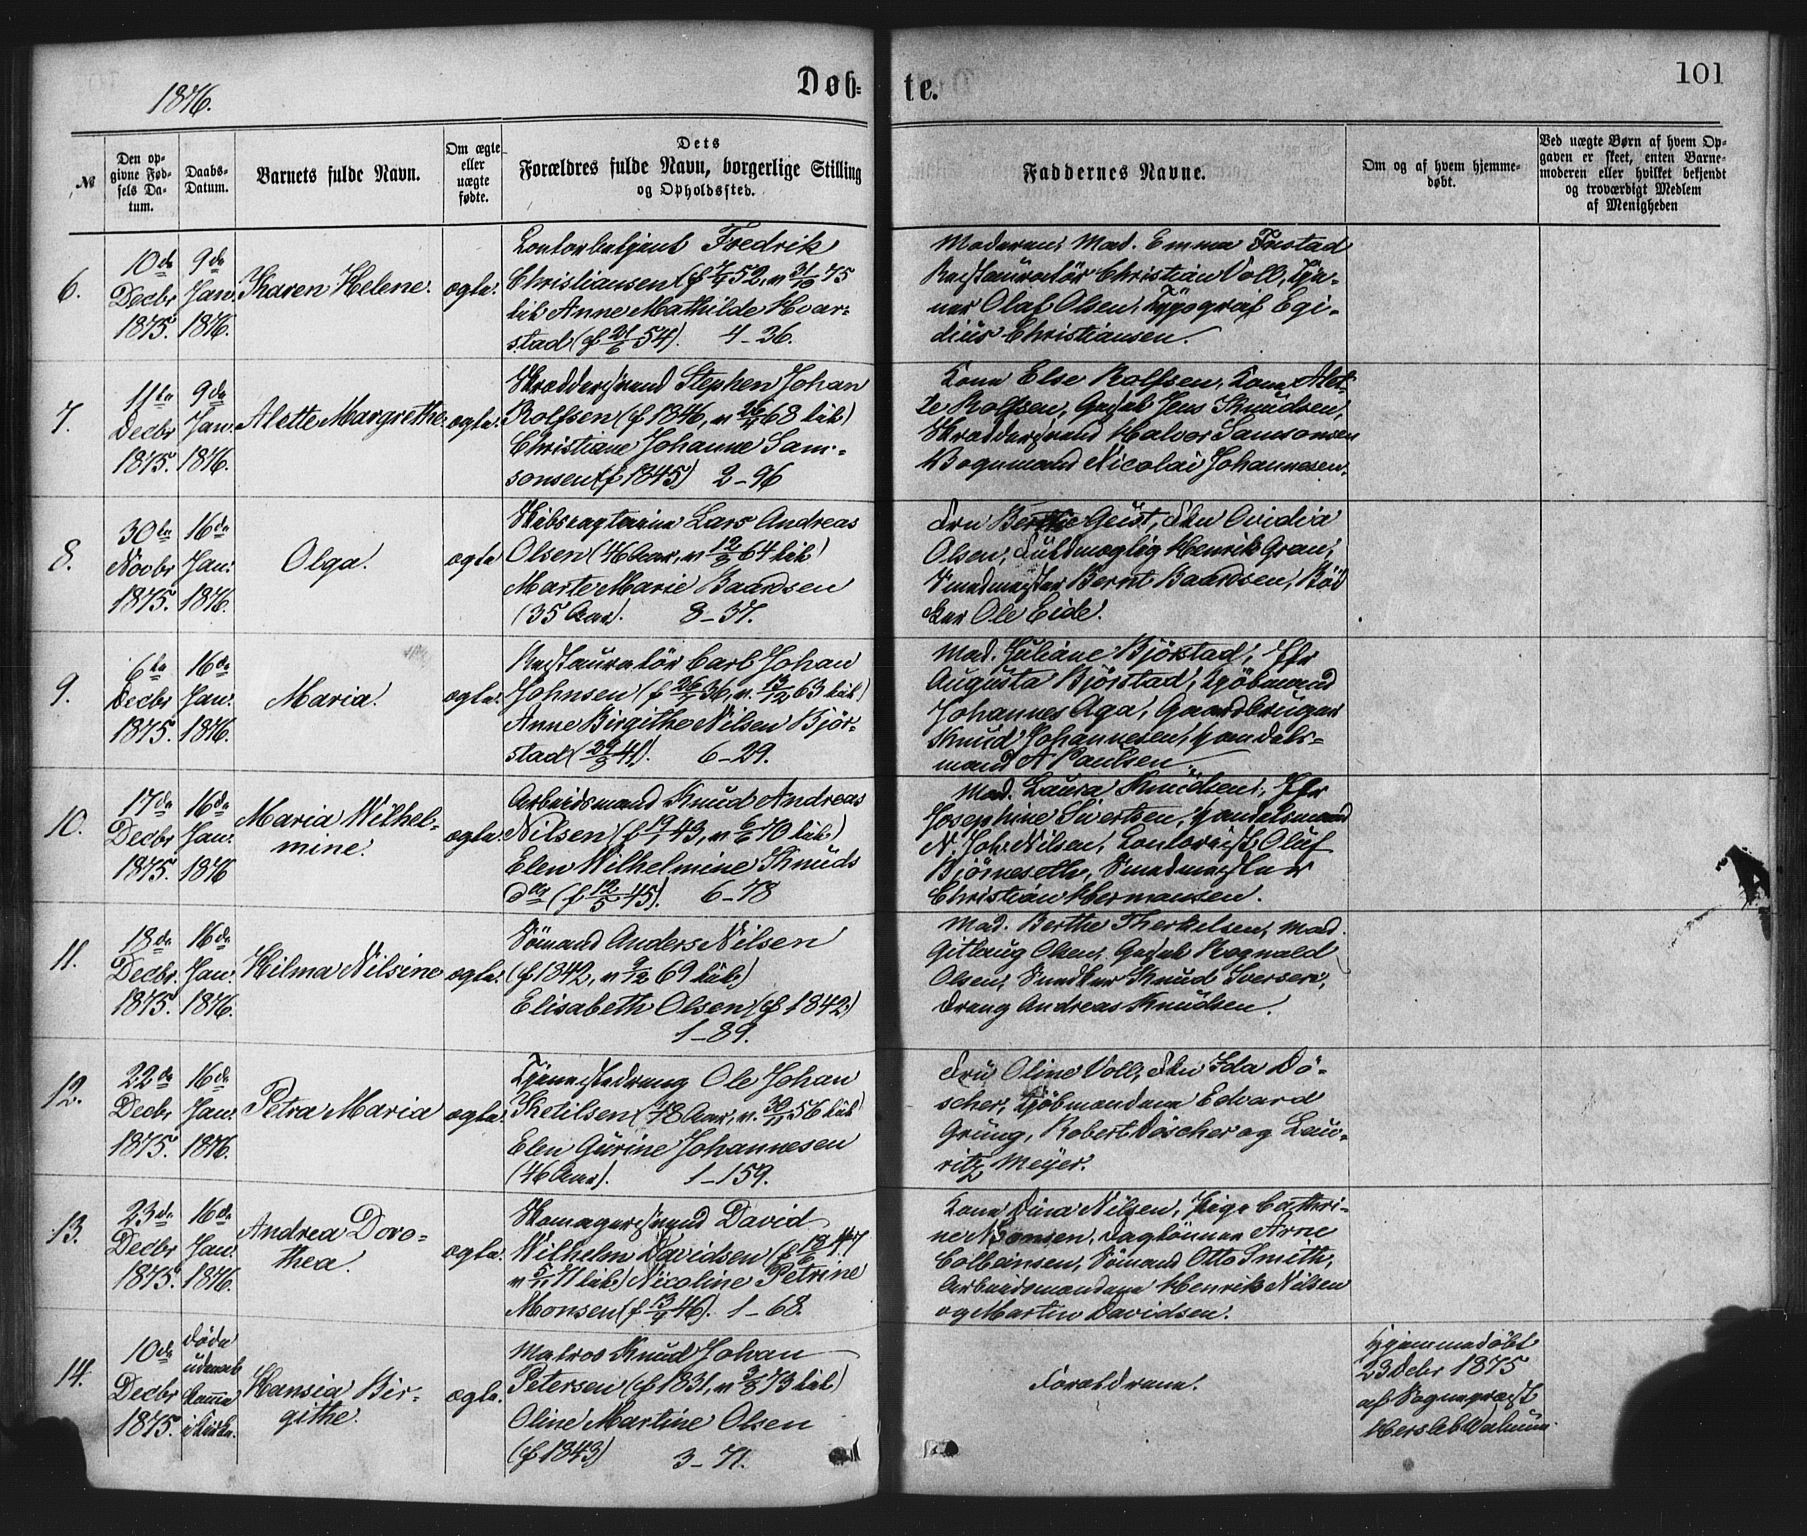 1876.
Døb-
te.
101
№
Den op-
givne Fød-
sels Da-
tum.
Daabs-
Datum.
Barnets fulde Navn.
Om ægte
eller
uægte
fødte.
Dets
Forældres fulde Navn, borgerlige Stilling
og Opholdssted.
Faddernes Navne.
Om og af hvem hjemme-
døbt.
Ved uægte Børn af hvem Op-
gaven er skeet, enten Barne-
moderen eller hvilket bekjendt
og troværdigt Medlem
af Menigheden
6.
10de
Decbr
1875.
9de
Jan.
1876.
Karen Helene.
ægte.
Contorbetjent Fredrik
Christiansen (f 52, v 31/10 75
lib Anne Mathilde Hvar-
stad (f 21/6 54). 4-36.
Moderen, Mad. Emma
Restauratør Christian Voll, Tje-
ner Olaf Olsen, Typograf Egi-
dius Christiansen.
7.
11te
Decbr
1875.
9de
Jan.
1876.
Alette Margrethe.
ægte.
Skræddersvend Stephen Johan
Rolfsen (f 1846, v 68 lib)
Christiane Johanne Sam-
sonsen (f 1845) 2-96
Kone Else Rolfsen, Kone Alet-
te Rolfsen, Gesel Jens Knudsen,
Skræddersvend Halvor Samsonsen
Vognmand Nicolai Johannesen.
8.
30te
Novbr
1875.
16de
Jan.
1876.
Olga.
ægte
Skibscaptaine Lars Andreas
Olsen (46 Aar, v 64 lib)
Marte Marie Baardsen
(35 Aar). 8-37.
Fru Berthe Geist, Frk Ovidia
Olsen, Fuldmægtig Henrik Gran,
Smedmester Bernt Baardsen, Bød
ker Ole Eide.
9.
6te
Decbr
1875.
16de
Jan.
1876.
Maria.
ægte.
Restauratør Carl Johan
Johnsen (f 36, v. 13/12 63 lib)
Anne Birgithe Nilsen Bjør-
stad (29/8 41). 6-29.
Mad. Juliane Bjørstad, Jfr
Augusta Bjørstad, Kjøbmand
Johannes Aga, Gaardbruger
Knud Johannesen, Handels-
mand A Paulsen.
10.
17de
Decbr
1875.
16de
Jan.
1876
Maria Wilhel-
mine.
ægte.
Arbeidsmand Knud Andreas
Nilsen (f 43, v 6/6 70 lib)
Elen Wilhelmine Knuds
dtr (f 12/5 45). 6-78
Mad. Laura Knudsen, Jfr
Josephine Sivertsen, Handelsmand
N. Joh. Nilsen, Contorist Oluf
Bjørneseth, Smedmester
Christian Hermansen.
11.
18de
Decbr.
1875.
16de
Jan.
1876.
Hilma Nilsine
ægte.
Sømand Anders Nilsen
(f 1842, v 9/12 69 lib)
Elisabeth Olsen (f 1842)
1-89.
Mad. Berthe Therkelsen, Mad.
Gitlaug Olsen, Gesel Rognvald
Olsen, Snedker Knud Iversen,
Dreng Andreas Knudsen.
12.
22de
Decbr
1875.
16de
Jan.
1876.
Petra Maria
ægte.
Tjenestedreng Ole Johan
Ketilsen (48 Aar, v. 30/11 56 lib)
Elen Gurine Johannesen
(46 Aar). 1-159.
Fru Oline Voll, Frk Ida Dö-
scher, Kjøbmændene Edvard
Grüng, Robert Döscher og Lau-
ritz Meyer.
13.
23de
Decbr
1875.
16de
Jan.
1876.
Andrea Doro-
thea.
ægte.
Skomagersvend David
Wilhelm Davidsen (f 18/6 47
v 5/11 71 lib) Nicoline Petrine
Monsen (f 46). 1-68.
Kone Dina Nilsen, Pige Cathri-
ne Monsen, Dagløner Arne
Colbeinsen, Sømand Otto Smith,
Arbeidsmændene Henrik Nilsen
og Martin Davidsen.
14.
10de
Decbr
1875.
døde
uden at
komme
i Kirke.
Hansia Bir-
githe.
ægte.
Matros Knud Johan
Petersen (f 1831, v 3/8 73 lib)
Oline Martine Olsen
(f 1843) 3-71.
Forældrene.
Hjemmedøbt
23 Debr 1875
af Sogneprest
Hersleb Walnum.